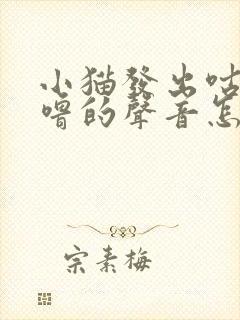 小猫發出咕
噜的聲音怎
宗素梅